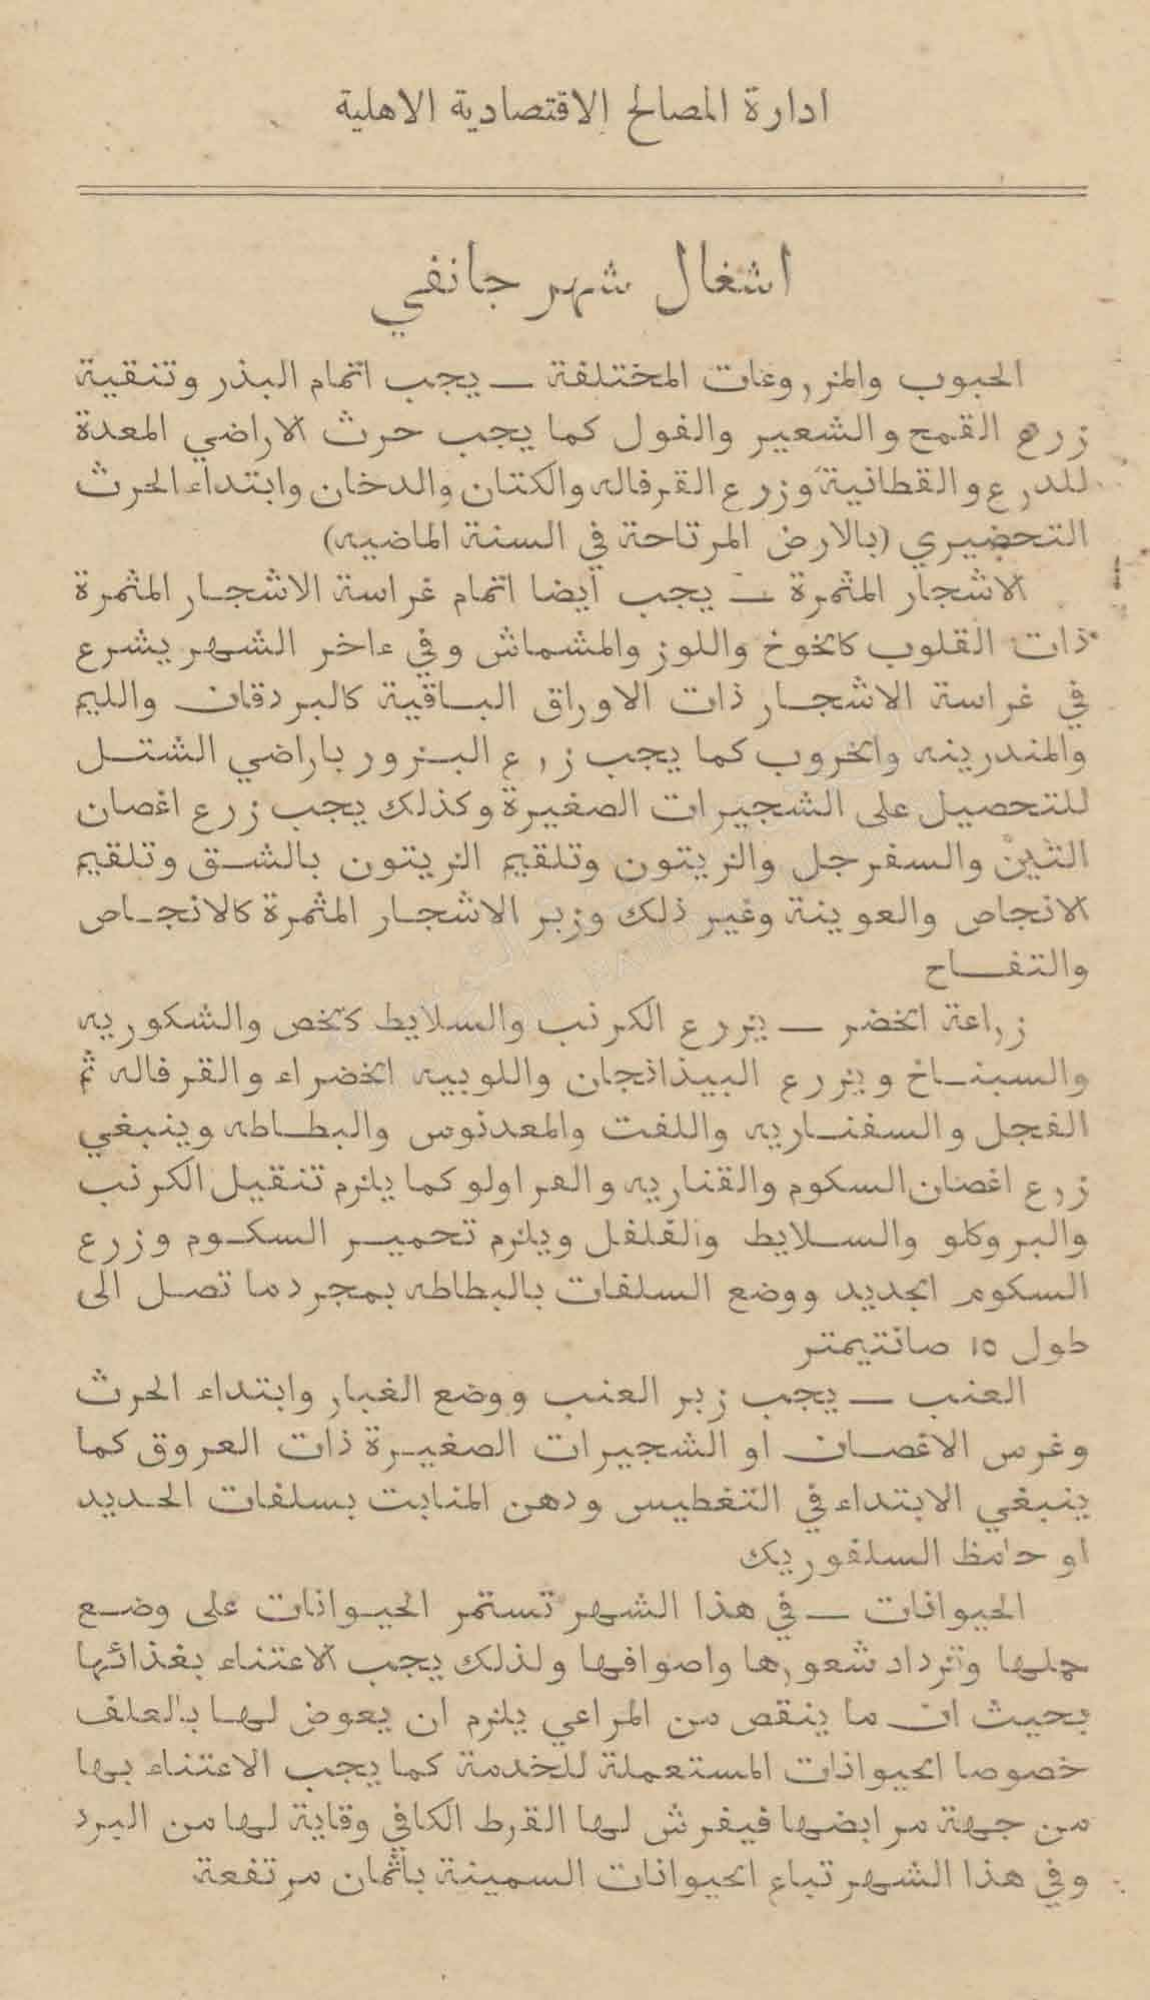 ادارة المصالح الاقتصادية الاهلية
اشغال شهر جانفي
الحبوب والمزروعات المختلفة — يجب اتمام البذر وتنقية
زرع القمح والشعير والفول كما يجب حرث الاراضي المعدة
للدرع والقطانية وزرع القرفاله والكتان والدخان وابتداء الحرث
التحضيري (بالارض المرتاحة في السنة الماضيه)
الاشجار المثمرة — يجب أيضا اتمام غراسة الاشجار المثمرة
ذات القلوب كالخوخ واللوز والمشماش وفي ءاخر الشهر يشرع
في غراسة الاشجار ذات الاوراق الباقية كالبردقان والليم
والمندرينه والخروب كما يجب زرع البزور باراضي الشتل
للتحصيل على الشجيرات الصغيرة وكذلك يجب زرع اغصان
التين والسفرجل والزيتون وتلقيم الزيتون بالشق وتلقيم
الانجاص والعوينة وغير ذلك وزبر الاشجار المثمرة كالانجاص
والتفاح
زراعة الخضر — يزرع الكرنب والسلايط كالخص والشكوريه
والسبناخ ويزرع البيذانجان واللوبيه الخضراء والقرفاله ثم
الفجل والسفناريه واللفت والمعدنوس والبطاطه وينبغي
زرع اغصان السكوم والقناريه والفراولو كما يلزم تنقيل الكرنب
والبروكلو والسلايط والفلفل ويلزم تحمير السكوم وزرع
السكوم الجديد ووضع السلفات بالبطاطه بمجرد ما تصل الى
طول ١٥ صانتيمتر
العنب — يجب زبر العنب ووضع الغبار وابتداء الحرث
وغرس الاغصان او الشجيرات الصغيرة ذات العروق كما
ينبغي الابتداء في التغطيس ودهن المنابت بسلفات الحديد
او حامظ السلفوريك
الحيوانات — في هذا الشهر تستمر الحيوانات على وضع
حملها وتزداد شعورها واصوافها ولذلك يجب الاعتناء بغذائها
بحيث ان ما ينقص من المراعي يلزم ان يعوض لها بالعلف
خصوصا الحيوانات المستعملة للخدمة كما يجب الاعتناء بها
من جهة مرابضها فيفرش لها القرط الكافي وقاية لها من البرد
وفي هذا الشهر تباع الحيوانات السمينة بأثمان مرتفعة